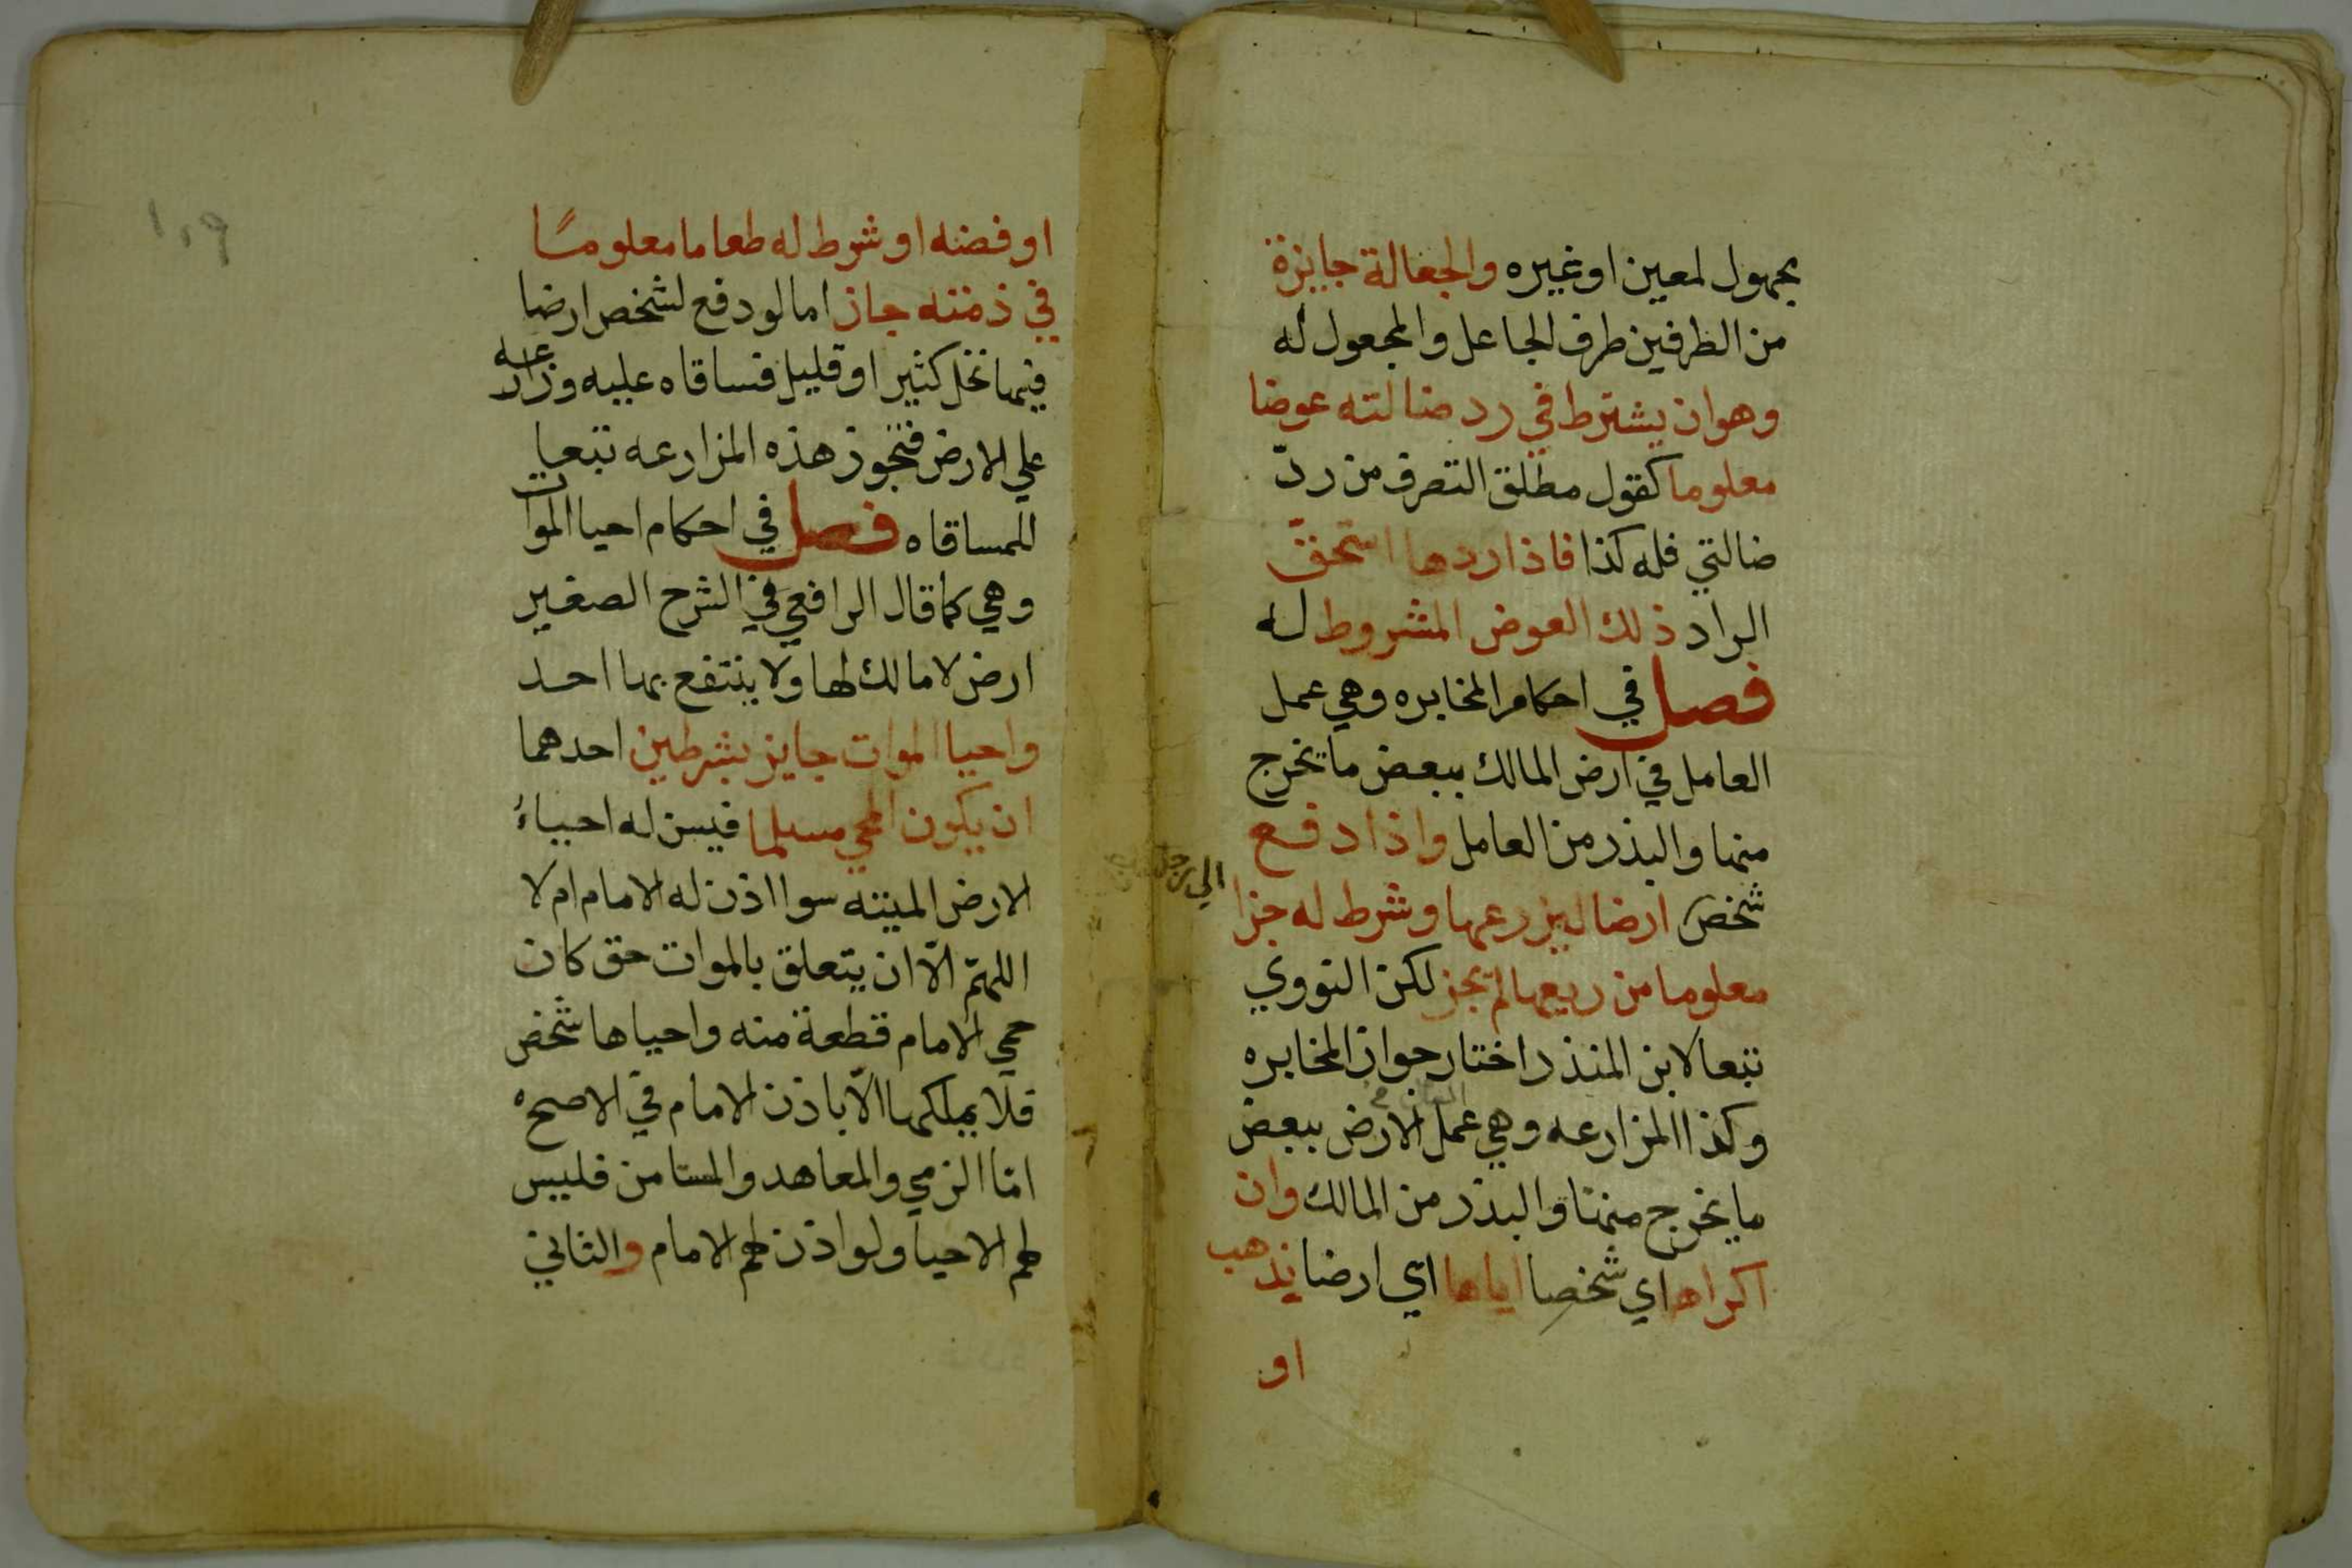 بجهول لمعين او غيره والجعالة جايزة
من الطرفين طرف الجاعل والمجعول له
وهوان يشترط في رد ضالته عوضا
معلوما كقول مطلق التصرف من ردّ
ضالتي فله كذا فاذا ردها استحق
الراد ذلك العوض المشروط له
فصل في احكام المخابره وهي عمل
العامل في ارض المالك ببعض ما يخرج
منها والبذر من العامل واذا دفع
شخص ارضا ليزرعها وشرط له جزا
الي رجل
معلوما من ريعها لم يجز لكن النووي
تبعا لابن المنذر اختار جواز المخابره
وكذا المزارعه وهي عمل الارض ببعض
ما يخرج منها والبذر من المالك وان
اكراه اي شخصا اياها اي ارضا بذهب
او
١٠٩
او فضه او شرط له طعاما معلومًا
في ذمته جاز اما لو دفع لشخص ارضا
فيها نخل كثير او قليل فساقاه عليه وزارعه
علي الارض فتجوز هذه المزارعه تبعا
للمساقاه فصل في احكام احيا الموات
وهي كما قال الرافعي في الشرح الصغير
ارض لا مالك لها ولا ينتفع بها احد
واحيا الموات جايز بشرطين احدهما
ان يكون المحي مسلما فيسن له احياءُ
الارض الميته سوا اذن له الامام ام لا
اللهمّ الّا ان يتعلق بالموات حق كان
حمي الامام قطعة منه واحياها شخص
فلا يملكها الّا باذن الامام في الاصح
امّا الزمي والمعاهد والمستامن فليس
لهم الاحيا ولو اذن لهم الامام والثاني